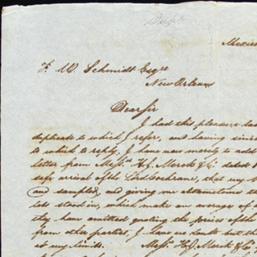 Mexico
F. W. Schmidt Esqre
New Orleans
Dear Sir
I had this pleasure
duplicate to which I refer, and having since
to which to reply, I have now merely to add
letter from Messrs H. J. Merck & Co. dated
safe arrival of the Lord Cochrane, that my
and sampled, and giving me
lots stood in, which make an average of
they have omitted quoting the prices of the
from other parties, I have no doubt but the
at my limits. Messrs H. J. Merck & Co.